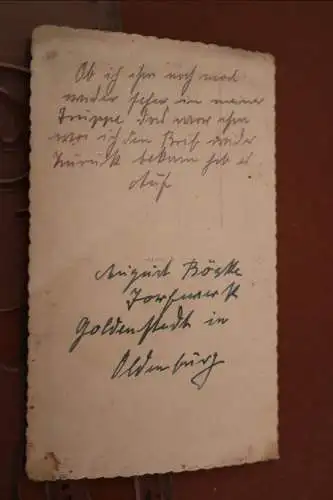 Ob ich ihn noch mal
wieder sehe in meiner
Truppe das war ihm
wie ich den Brief wieder
zurück bekam hab er
August Böske
Torfwerk
Goldenstedt in
Oldenburg